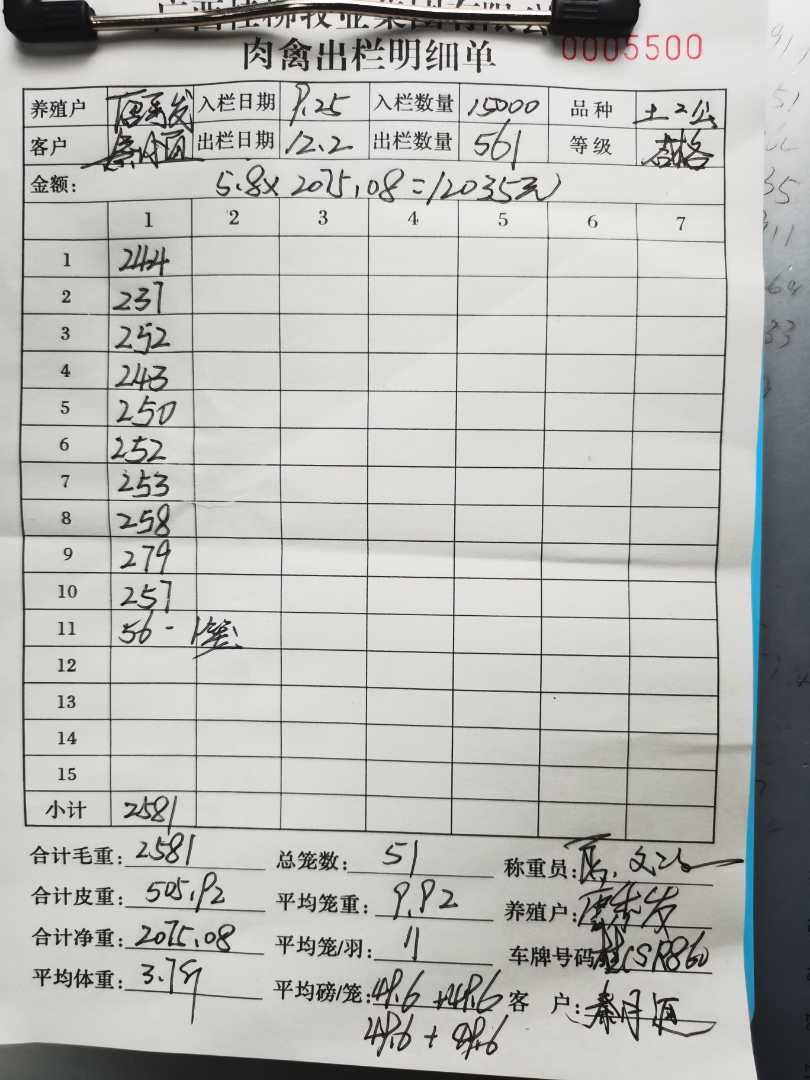 广西桂柳牧业集团有限公
肉禽出栏明细单 0005500
养殖户 入栏日期 9.25 入栏数量 15000 品种 土2公
客户 出栏日期 12.2 出栏数量 561 等级 合格
金额: 5.8x2075.08=12035元
1 2 3 4 5 6 7
1 244
2 237
3 252
4 243
5 250
6 252
7 253
8 258
9 279
10 257
11 56-1笼
12
13
14
15
小计 2581
合计毛重: 2581 总笼数: 51 称重员:
合计皮重: 505.92 平均笼重: 9.92 养殖户:
合计净重: 2075.08 平均笼/羽: 11 车牌号码 桂CSR860
平均体重: 3.7 平均磅/笼: 49.6+49.6 客户:
49.6+49.6